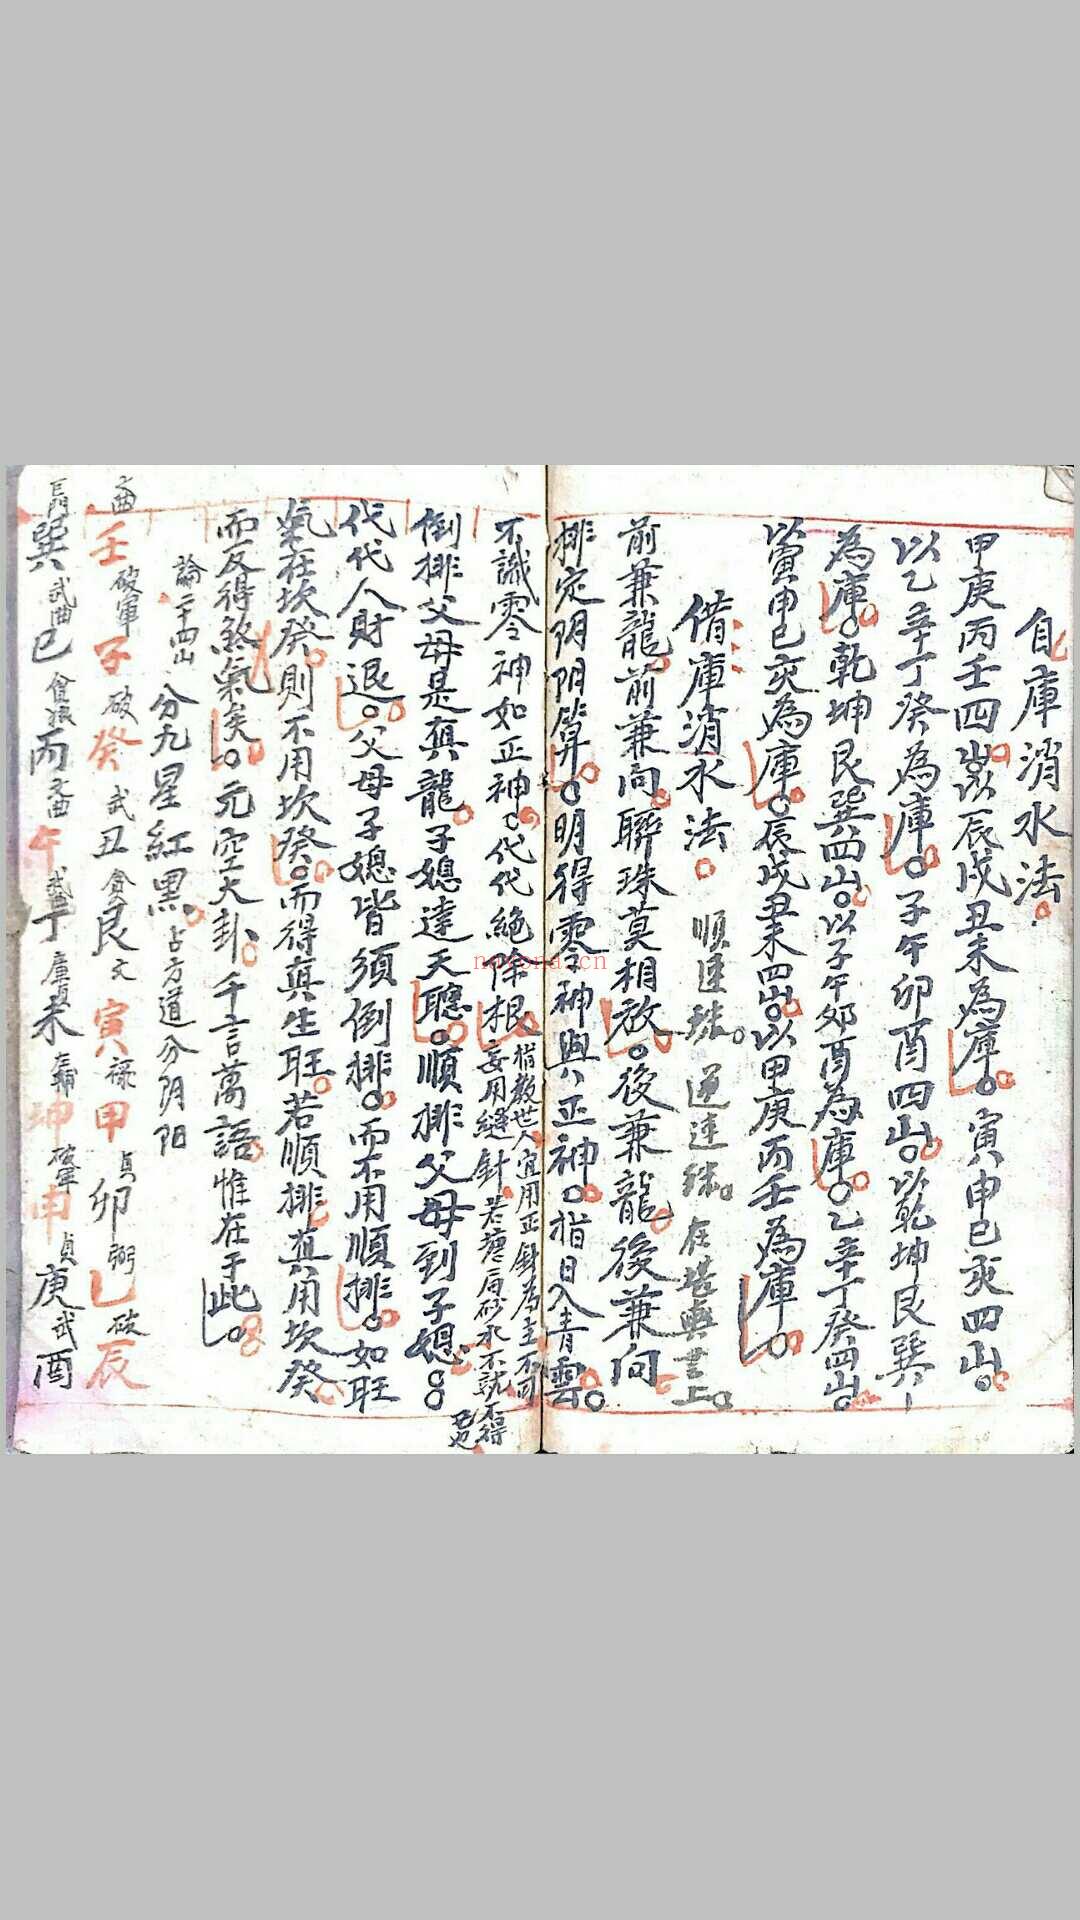 自庫消水法
甲庚丙壬四山以辰戌丑未為庫。寅申巳亥四山。
以乙辛丁癸為庫。子午卯酉四山。以乾坤艮巽
為庫。乾坤艮巽四山。以子午卯酉為庫。乙辛丁癸四山。
以寅申巳亥為庫。辰戌丑未四山。以甲庚丙壬為庫。
借庫消水法。順連珠。逆連珠。在堪輿書上。
前兼龍前兼向聯珠莫相放。後兼龍後兼向
排定阴阳算。明得零神與正神。指日入青雲。
不識零神如正神。代代絶除根。指教世人宜用正針為主不可
妄用縫針。若塘局砂水不就不得
已也
倒排父母是真龍子媳達天聽。順排父母到子媳。
代代人財退。父母子媳皆須倒排。而不用順排。如旺
氣在坎癸則不用坎癸。而得真生旺。若順排真用坎癸
而反得煞氣矣。元空大卦千言萬語惟在于此。
論二十四山分九星紅黑。占方道分阴阳
曲壬破軍子破癸武丑貪艮文寅祿甲貞卯弼乙破辰
巨門巽武曲巳貪狼丙文曲午丁廉貞未左輔坤破軍申貞庚武酉
navona.cn